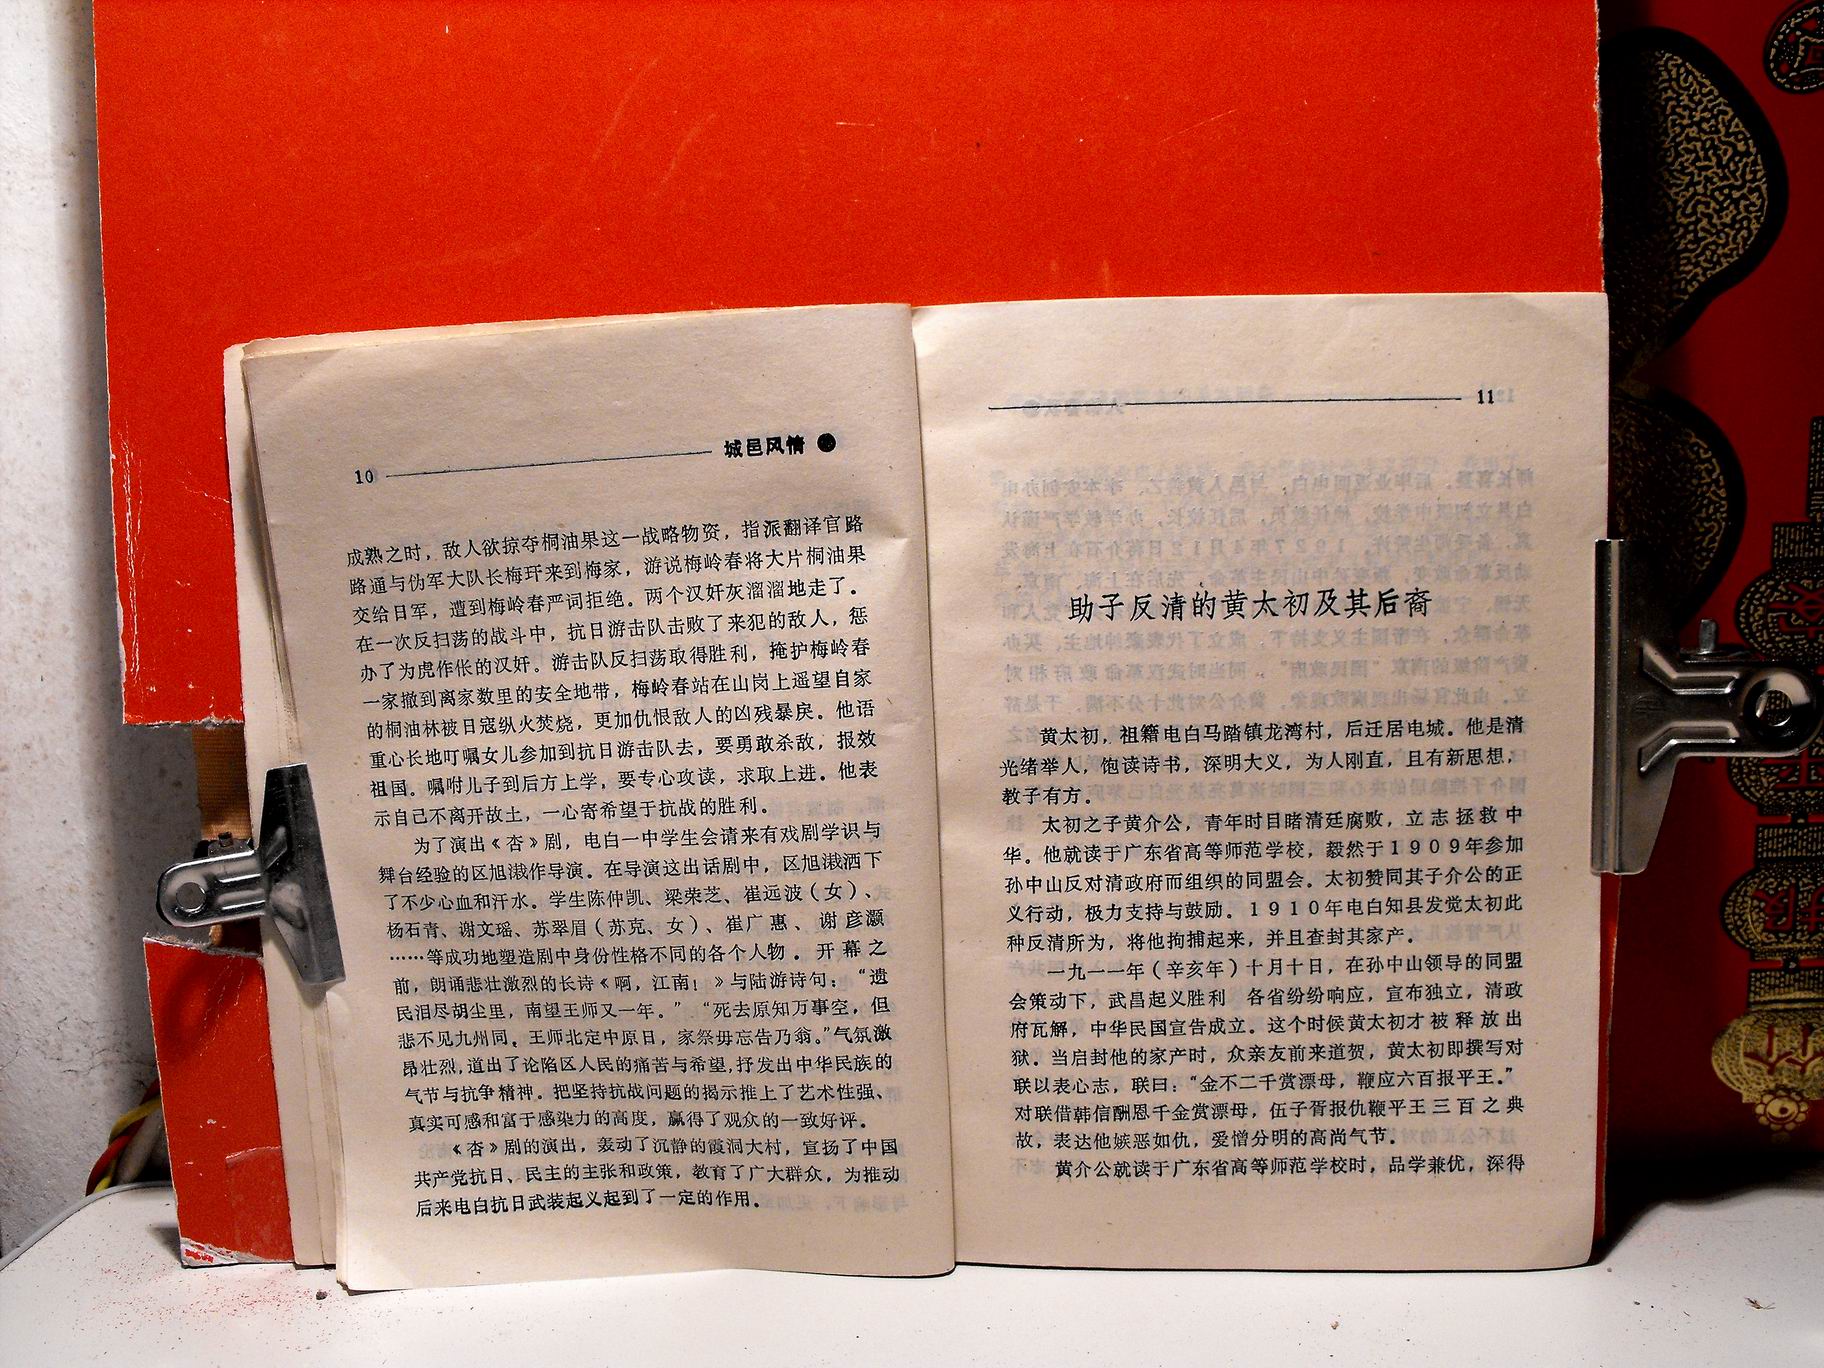 10 城邑风情
成熟之时，敌人欲掠夺桐油果这一战略物资，指派翻译官路
路通与伪军大队长梅玕来到梅家，游说梅岭春将大片桐油果
交给日军，遭到梅岭春严词拒绝。两个汉奸灰溜溜地走了。
在一次反扫荡的战斗中，抗日游击队击败了来犯的敌人，惩
办了为虎作伥的汉奸。游击队反扫荡取得胜利，掩护梅岭春
一家撤到离家数里的安全地带，梅岭春站在山岗上遥望自家
的桐油林被日寇纵火焚烧，更加仇恨敌人的凶残暴戾。他语
重心长地叮嘱女儿参加到抗日游击队去，要勇敢杀敌，报效
祖国。嘱咐儿子到后方上学，要专心攻读，求取上进。他表
示自己不离开故土，一心寄希望于抗战的胜利。
为了演出《杏》剧，电白一中学生会请来有戏剧学识与
舞台经验的区旭作导演。在导演这出话剧中，区旭洒下
了不少心血和汗水。学生陈仲凯、梁荣芝、崔远波（女）、
杨石青、谢文瑶、苏翠眉（苏克、女）、崔广惠、谢彦灏
……等成功地塑造剧中身份性格不同的各个人物．开幕之
前，朗诵悲壮激烈的长诗《啊，江南！》与陆游诗句：“遗
民泪尽胡尘里，南望王师又一年。”“死去原知万事空，但
悲不见九州同。王师北定中原日，家祭毋忘告乃翁。”气氛激
昂壮烈，道出了论陷区人民的痛苦与希望，抒发出中华民族的
气节与抗争精神。把坚持抗战问题的揭示推上了艺术性强、
真实可感和富于感染力的高度，赢得了观众的一致好评。
《杏》剧的演出，轰动了沉静的霞洞大村，宣扬了中国
共产党抗日、民主的主张和政策，教育了广大群众，为推动
后来电白抗日武装起义起到了一定的作用。
11
助子反清的黄太初及其后裔
黄太初，祖籍电白马踏镇龙湾村，后迁居电城。他是清
光绪举人，饱读诗书，深明大义，为人刚直，且有新思想，
教子有方．
太初之子黄介公，青年时目睹清廷腐败，立志拯救中
华．他就读于广东省高等师范学校，毅然于１９０９年参加
孙中山反对清政府而组织的同盟会。太初赞同其子介公的正
义行动，极力支持与鼓励．１９１０年电白知县发觉太初此
种反清所为，将他拘捕起来，并且查封其家产．
一九一一年（辛亥年）十月十日，在孙中山领导的同盟
会策动下，武昌起义胜利　各省纷纷响应，宣布独立，清政
府瓦解，中华民国宣告成立。这个时候黄太初才被释放出
狱．当启封他的家产时，众亲友前来道贺，黄太初即撰写对
联以表心志，联曰：“金不二千赏漂母，鞭应六百报平王．”
对联借韩信酬恩千金赏漂母，伍子胥报仇鞭平王三百之典
故，表达他嫉恶如仇，爱憎分明的高尚气节．
黄介公就读于广东省高等师范学校时，品学兼优，深得